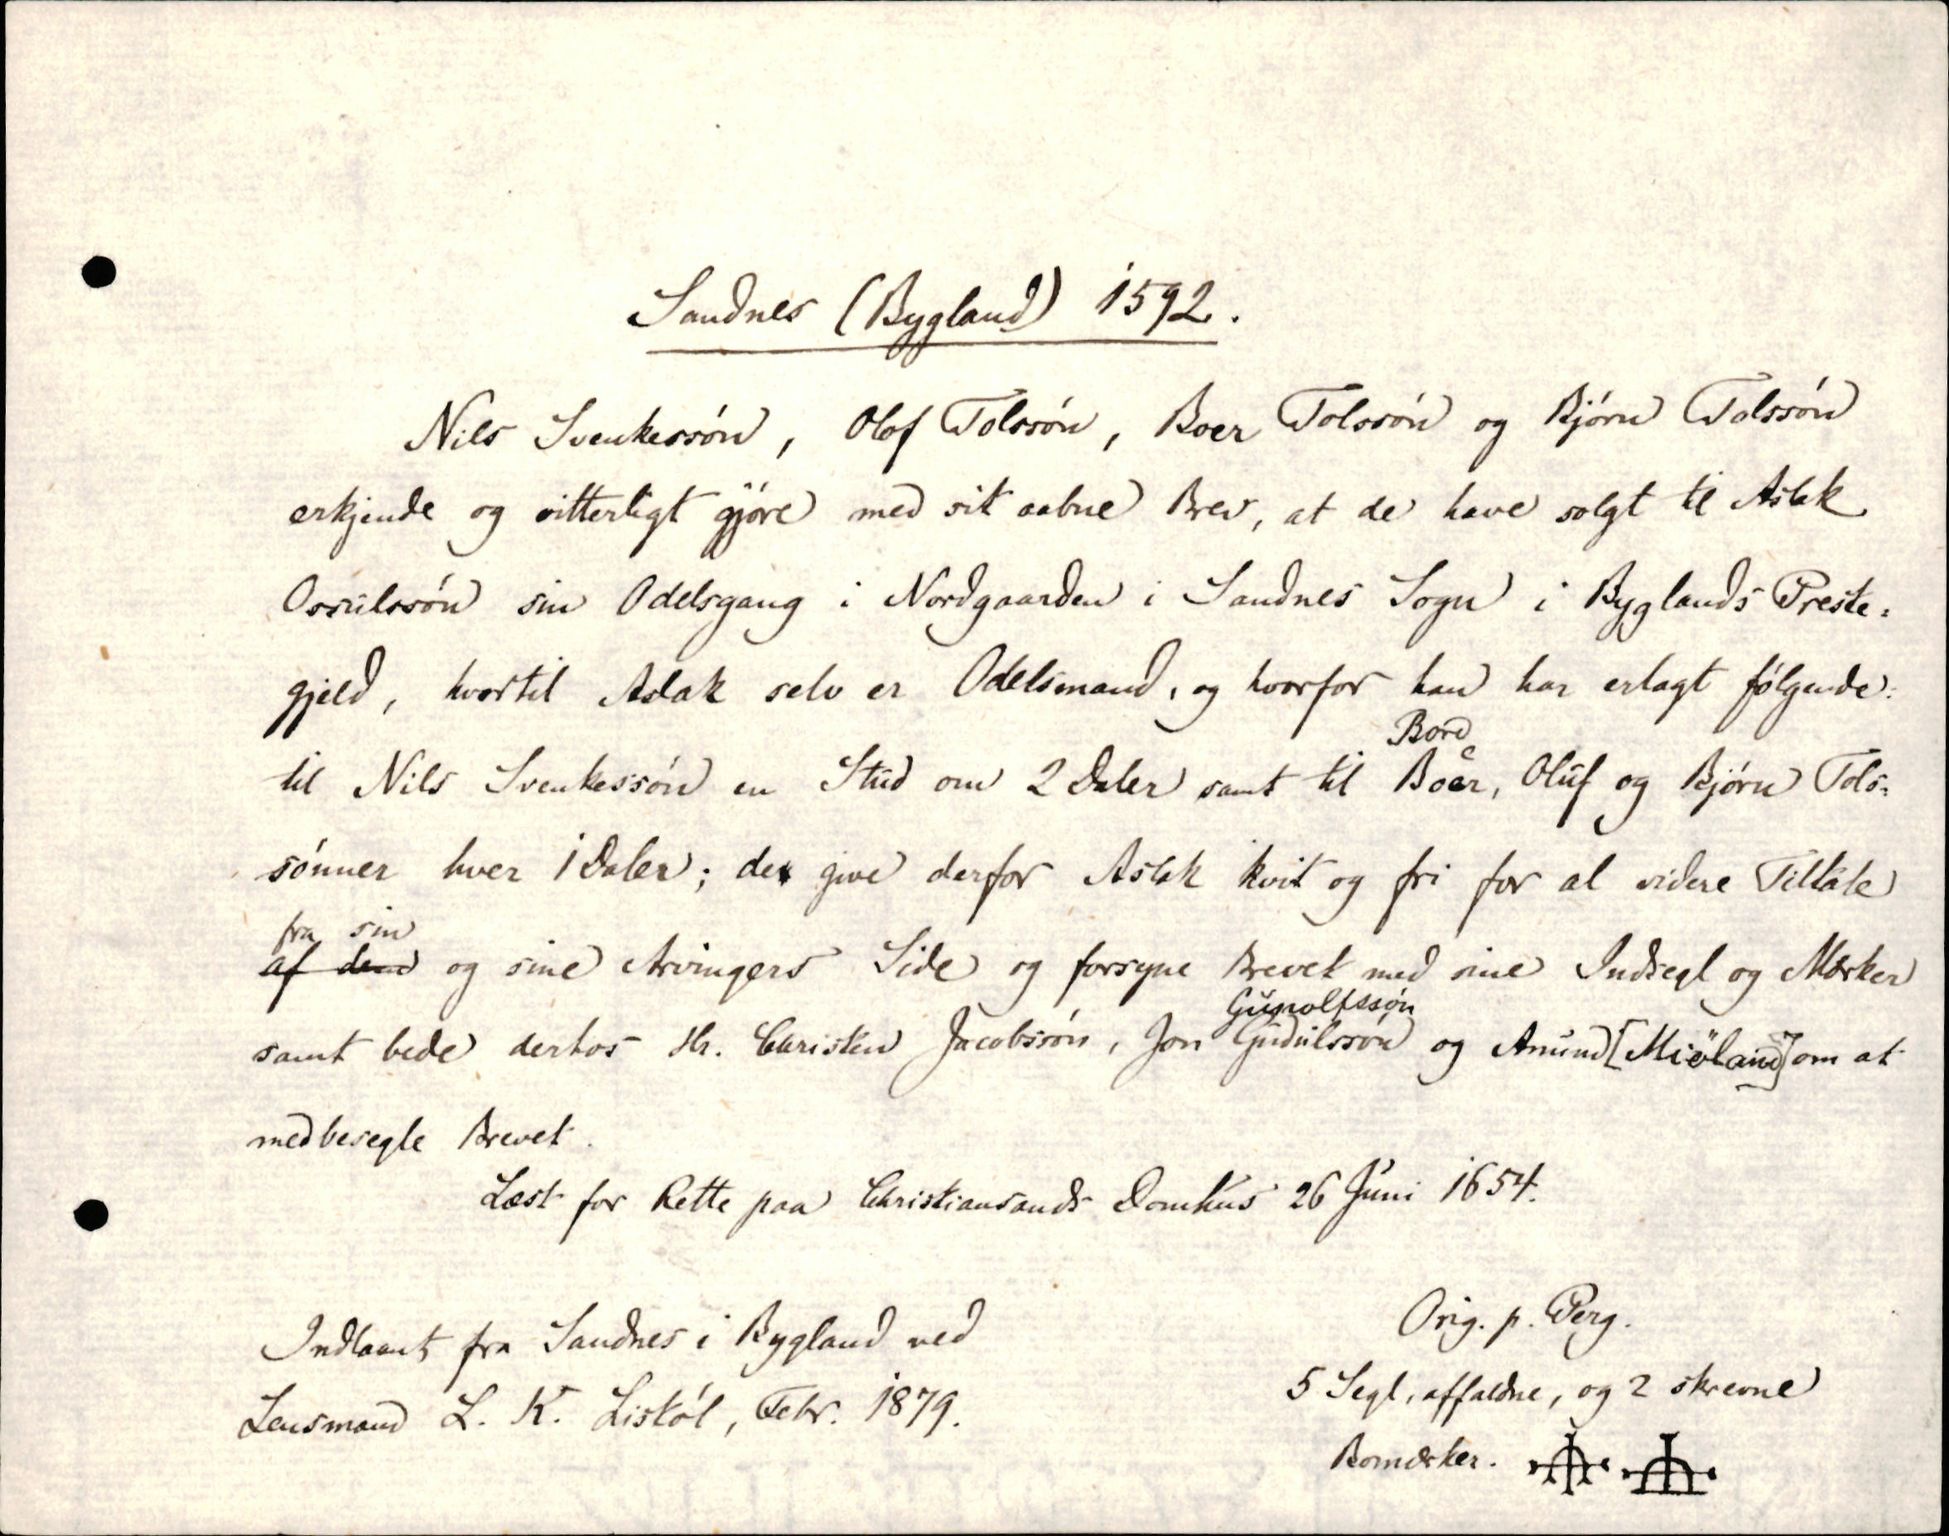 Sandnes (Bygland) 1592.
Nils Svenkessón, Olof Tolssón, Boer Tolssón og Bjórn Tolssón
erkjende og vitterligt gjóre med sit aabne Brev, at de have solgt til Aslak
Ossulssón sin Odelsgang i Nordgaarden i Sandnes Sogn i Byglands Preste-
gjeld, hvortil Aslak selv er Odelsmand, og hvorfor han har erlagt fólgende:
Bord
til Nils Svenkessón en Stud om 2 Daler samt til Boer, Oluf og Bjórn Tols-
sónner hver 1 Daler; de give derfor Aslak kvit og fri for al videre Tiltale
fra sin
af dem og sine Arvingers Side og forsyne Brevet med sine Indsegl og Mærker
Gunolfssøn
samt bede derhos Hr. Christen Jacobssón, Jon Gudulssón og Anund [Miöland] om at
medbesegle Brevet.
Læst for Rette paa Christiansands Domhus 26 Juni 1654.
Indlaant fra Sandnes i Bygland ved
Lensmand L. K. Liskól, Febr. 1879.
Orig. p. Perg.
5 Segl, affaldne, og 2 skrevne
Bomærker.